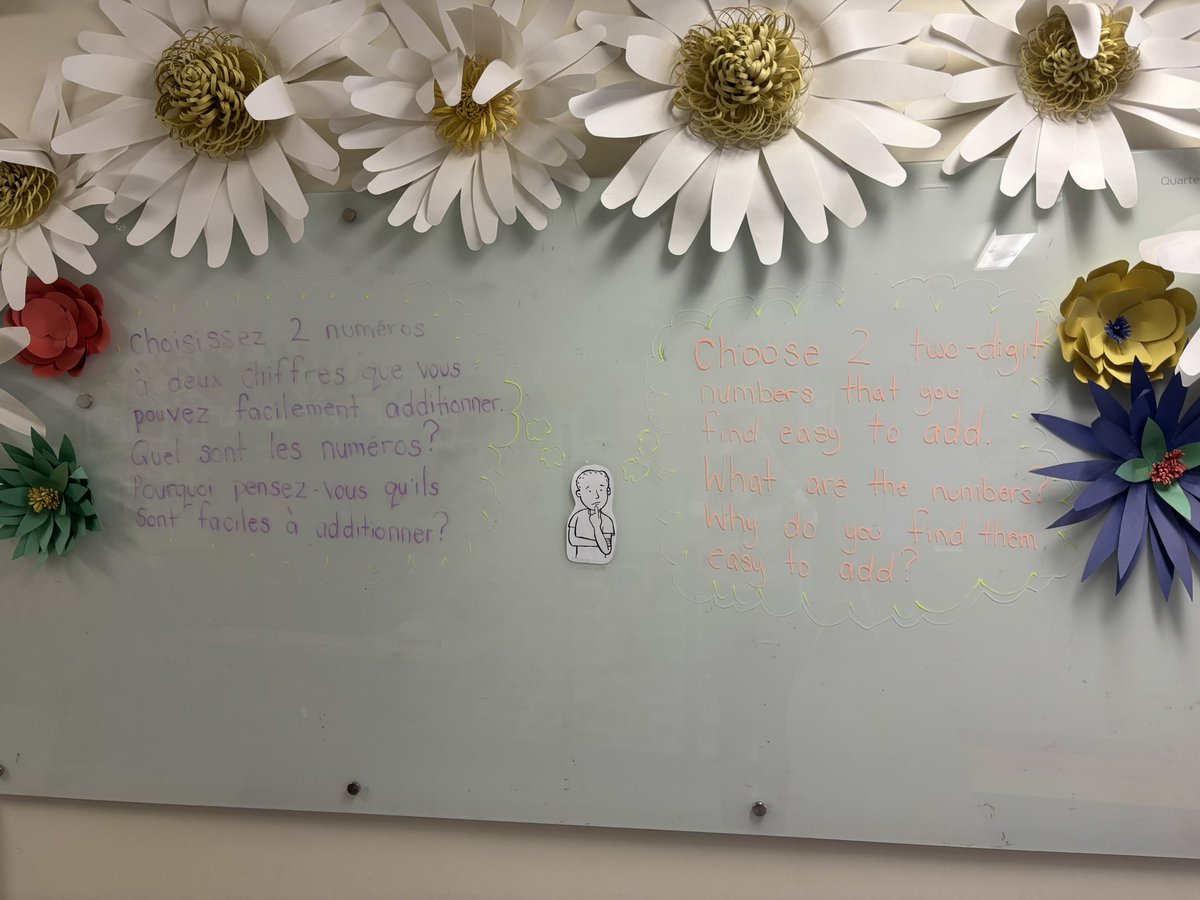 Choisissez 2 numéros
à deux chiffres que vous
pouvez facilement additionner.
Quel sont les numéros?
Pourquoi pensez-vous qu'ils
sont faciles à additionner?
Choose 2 two-digit
numbers that you
find easy to add.
What are the numbers?
Why do you find them
easy to add?
Quarte